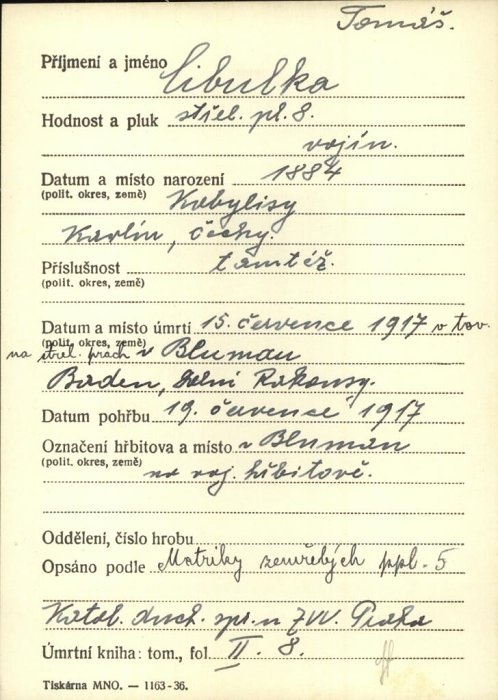 Tomáš.
Příjmení a jméno Cibulka
Hodnost a pluk střel. pl. 8.
vojín.
Datum a místo narození 1884
(polit. okres, země) Kobylisy
Karlín, Čechy.
Příslušnost tamtéž.
(polit. okres, země)
Datum a místo úmrtí 15. července 1917 v tov.
(polit. okres, země)
na střel. prach v Blumau
Baden, Dolní Rakousy.
Datum pohřbu 19. července 1917
Označení hřbitova a místo v Blumau
(polit. okres, země) na voj. hřbitově.
Oddělení, číslo hrobu
Opsáno podle Matriky zemřelých ppl. 5
Katol. duch. spr. u ZVV. Praha
Úmrtní kniha: tom., fol. II. 8.
Tiskárna MNO. — 1163-36.